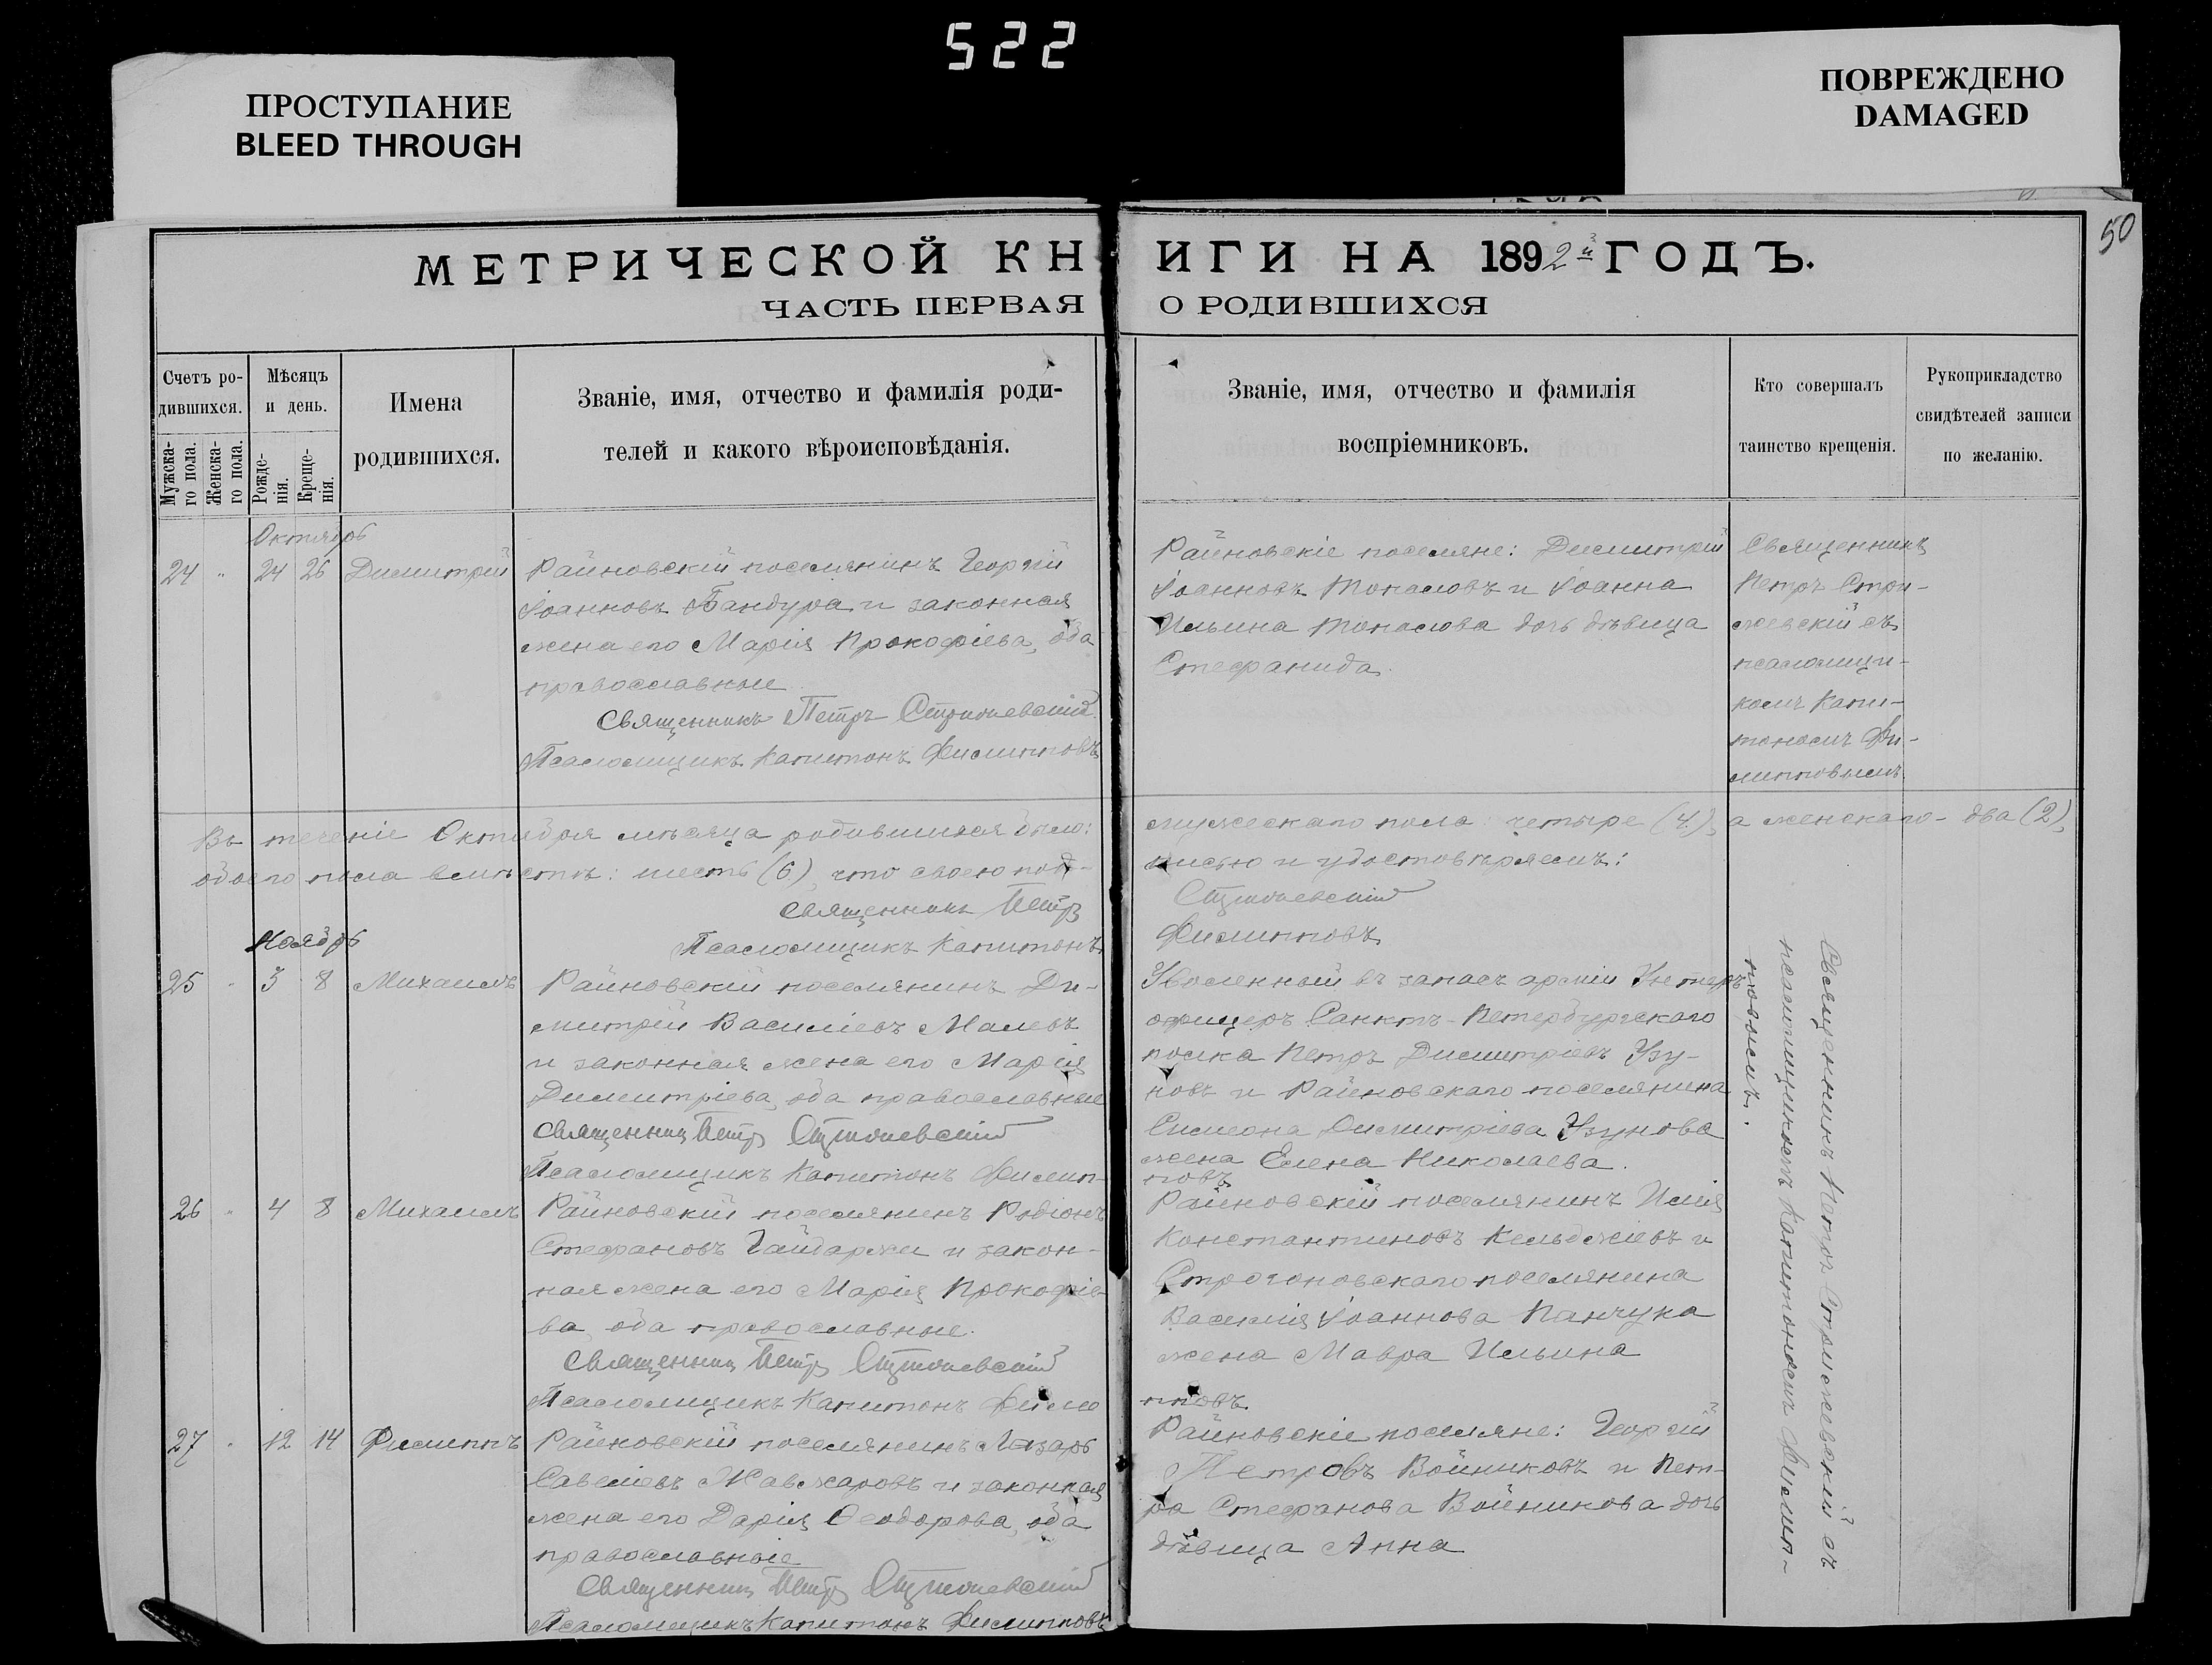 522
ПРОСТУПАНИЕ
BLEED THROUGH
ПОВРЕЖДЕНО
DAMAGED
50
МЕТРИЧЕСКОЙ КНИГИ НА 1892й ГОДЪ.
ЧАСТЬ ПЕРВАЯ О РОДИВШИХСЯ
Счетъ ро-
дившихся.
Мужска-
го пола.
Женска-
го пола.
Мѣсяцъ
и день.
Рожде-
нія.
Креще-
нія.
Имена
родившихся.
Званіе, имя, отчество и фамилія роди-
телей и какого вѣроисповѣданія.
Званіе, имя, отчество и фамилія
воспріемниковъ.
Кто совершалъ
таинство крещенія.
Рукоприкладство
свидѣтелей записи
по желанію.
Октябрь
24 " 24 26 Димитрій
Райновскій поселянинъ Георгій
Іоанновъ Бандура и законная
жена его Марія Прокофіева, оба
православные
Священникъ Петръ Стрижевскій
Псаломщикъ Капитонъ Филипповъ
Райновскіе поселяне: Димитрій
Іоанновъ Топаловъ и Іоанна
Ильина Топалова дочь дѣвица
Стефанида.
Священникъ
Петръ Стри-
жевскій съ
псаломщи-
комъ Капи-
тономъ Фи-
липповымъ.
Въ теченіе Октября мѣсяца родившихся было: мужескаго пола четыре (4), а женскаго - два (2),
обоего пола вмѣстѣ: шесть (6), что своею под-
писью и удостовѣряемъ:
Священникъ Петръ Стрижевскій
Псаломщикъ Капитонъ Филипповъ
Ноябрь
25 " 3 8 Михаилъ
Райновскій поселянинъ Ди-
митрій Василіевъ Малевъ
и законная жена его Марія
Димитріева, оба православные
Священникъ Петръ Стрижевскій
Псаломщикъ Капитонъ Филип-
повъ
Уволенный въ запасъ арміи Унтеръ
офицеръ Санктъ-Петербургскаго
полка Петръ Димитріевъ Узу-
новъ и Райновскаго поселянина
Симеона Димитріева Узунова
жена Елена Николаева.
26 " 4 8 Михаилъ
Райновскій поселянинъ Родіонъ
Стефановъ Гайдаржи и закон-
ная жена его Марія Прокофіе-
ва, оба православные.
Священникъ Петръ Стрижевскій
Псаломщикъ Капитонъ Фили
пповъ
Райновскій поселянинъ Илія
Константиновъ Кельбежіевъ и
Строгоновскаго поселянина
Василія Іоаннова Панчука
жена Мавра Ильина
27 " 12 14 Филиппъ
Райновскій поселянинъ Лазарь
Савеліевъ Жавжаровъ и законная
жена его Дарія Ѳеодорова, оба
православные
Священникъ Петръ Стрижевскій
Псаломщикъ Капитонъ Филипповъ
Райновскіе поселяне: Георгій
Петровъ Войниковъ и Пет-
ра Стефанова Войникова дочь
дѣвица Анна
Священникъ Петръ Стрижевскій съ
псаломщикомъ Капитономъ Филип-
повымъ.